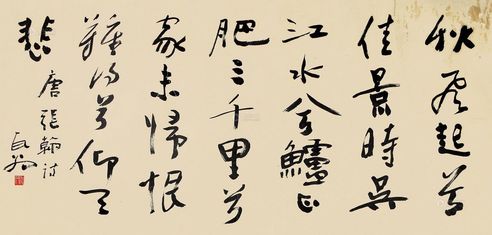 秋風起兮
佳景時吳
江水兮鱸正
肥三千里兮
家未歸恨
難得兮仰天
悲
唐張翰詩